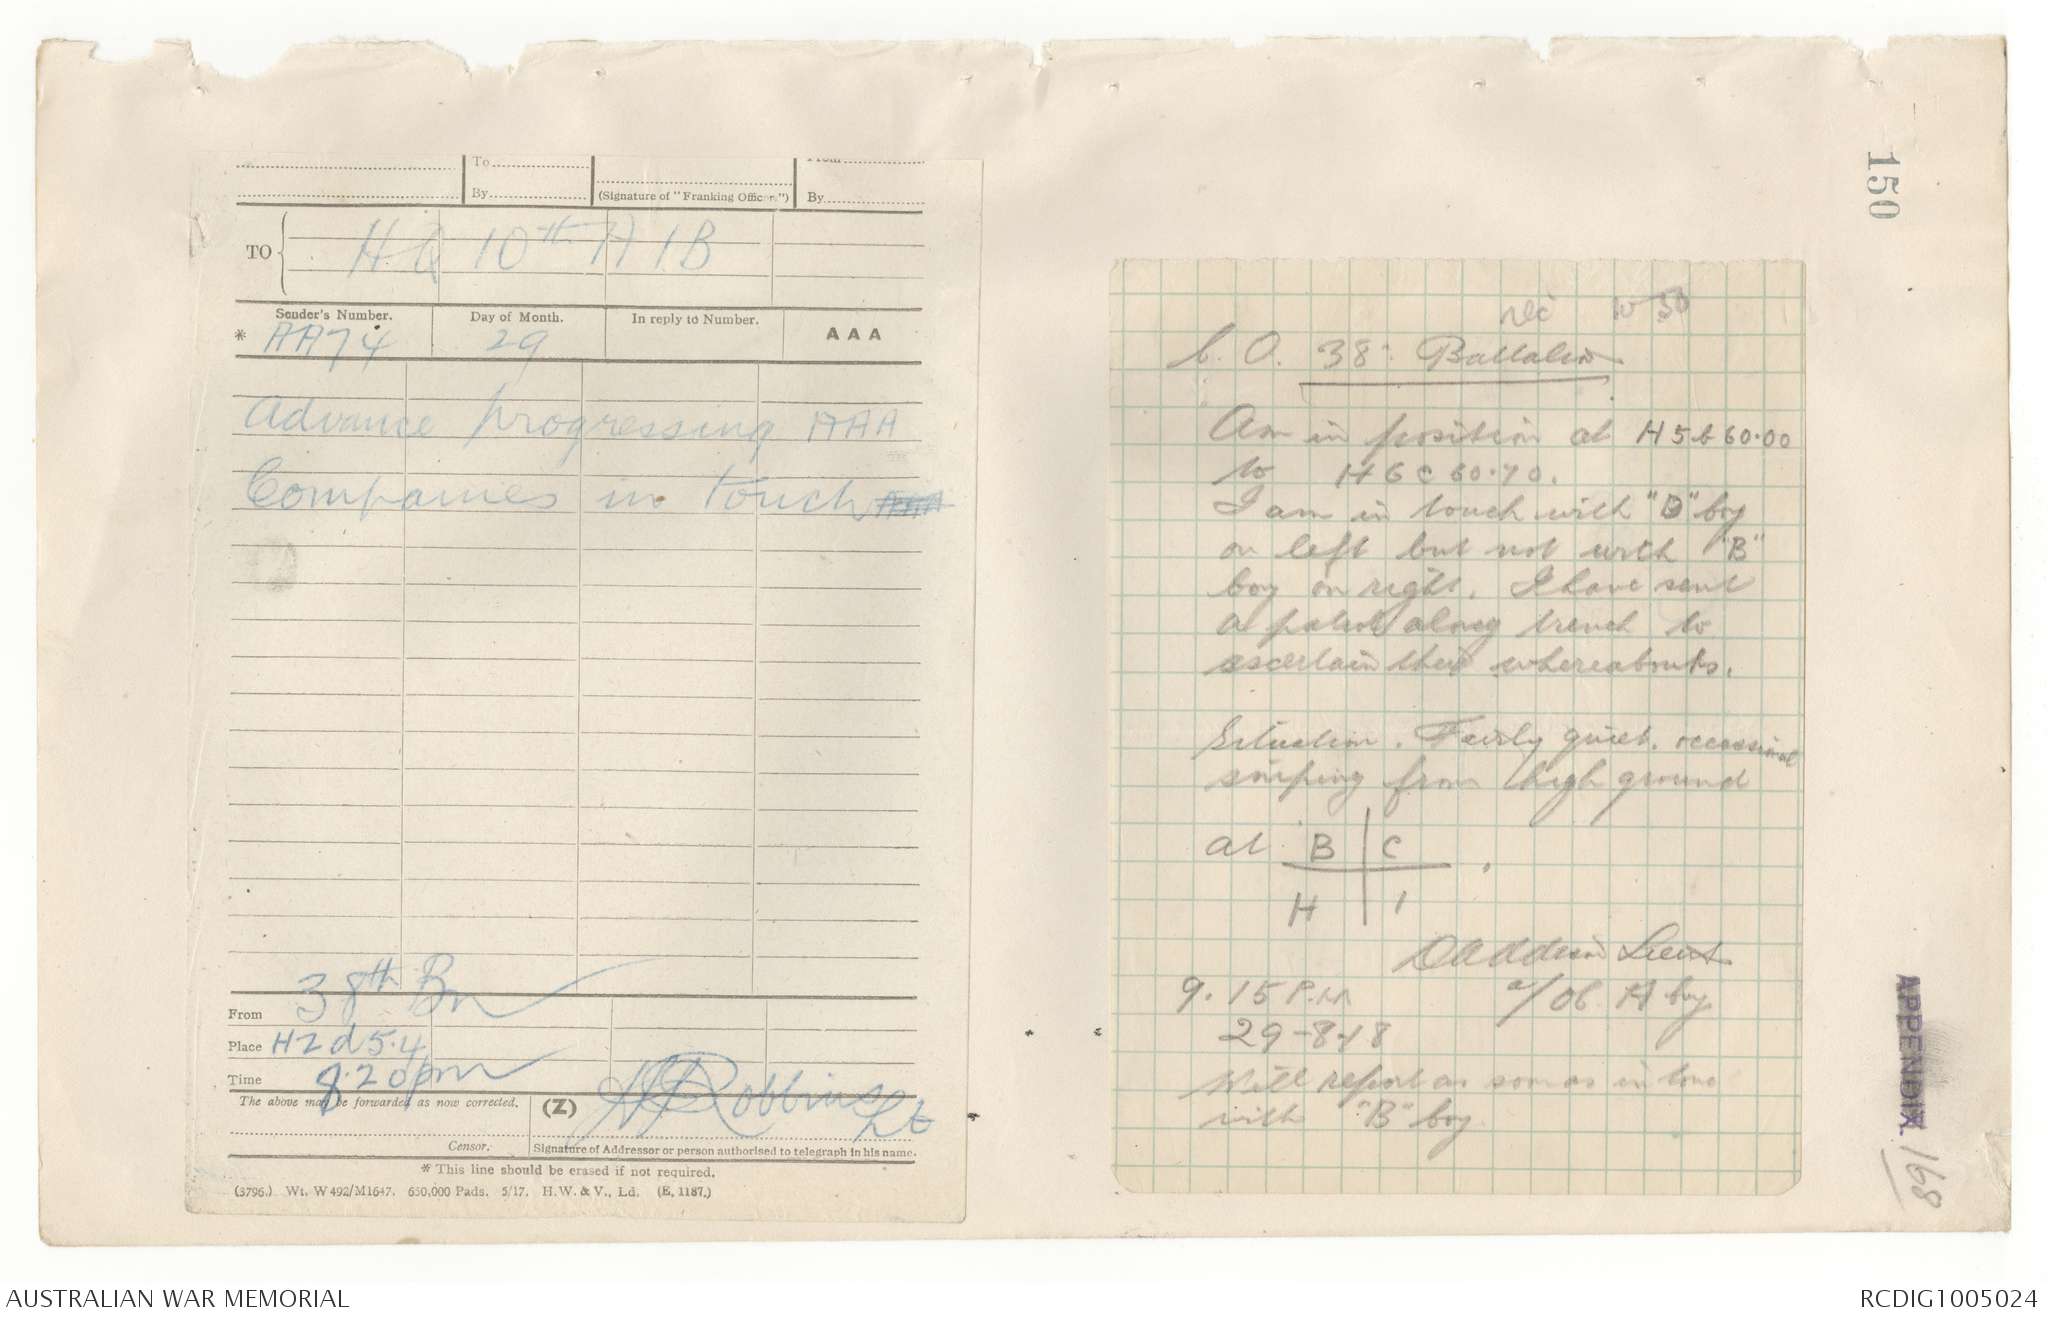 To
By
(Signature of "Franking Officer.")
From
By
TO
HQ 10th A I B
Sender's Number.
Day of Month.
In reply to Number.
AAA
* AA74
29
Advance progressing AAA
Companies in touch
From 38th Bn
Place H2d5.4
Time 8.20pm
The above may be forwarded as now corrected.
(Z)
Robbins Lt
Censor.
Signature of Addressor or person authorised to telegraph in his name.
* This line should be erased if not required.
(3796.) Wt. W492/M1647. 650,000 Pads. 5/17. H.W. & V., Ld. (E. 1187.)
150
C. O. 38th Battalion
Am in position at H5b60.00
to H6c60.70.
I am in touch with "D" Coy
on left but not with "B"
Coy on right. I have sent
a patrol along trench to
ascertain their whereabouts.
Situation. Fairly quiet. occassional
sniping from high ground
at B C
H I
Lieut
9.15 P.M
a/OC. A Coy
29-8-18
Will report as soon as in touc
with "B" Coy.
APPENDIX. 168
AUSTRALIAN WAR MEMORIAL
RCDIG1005024